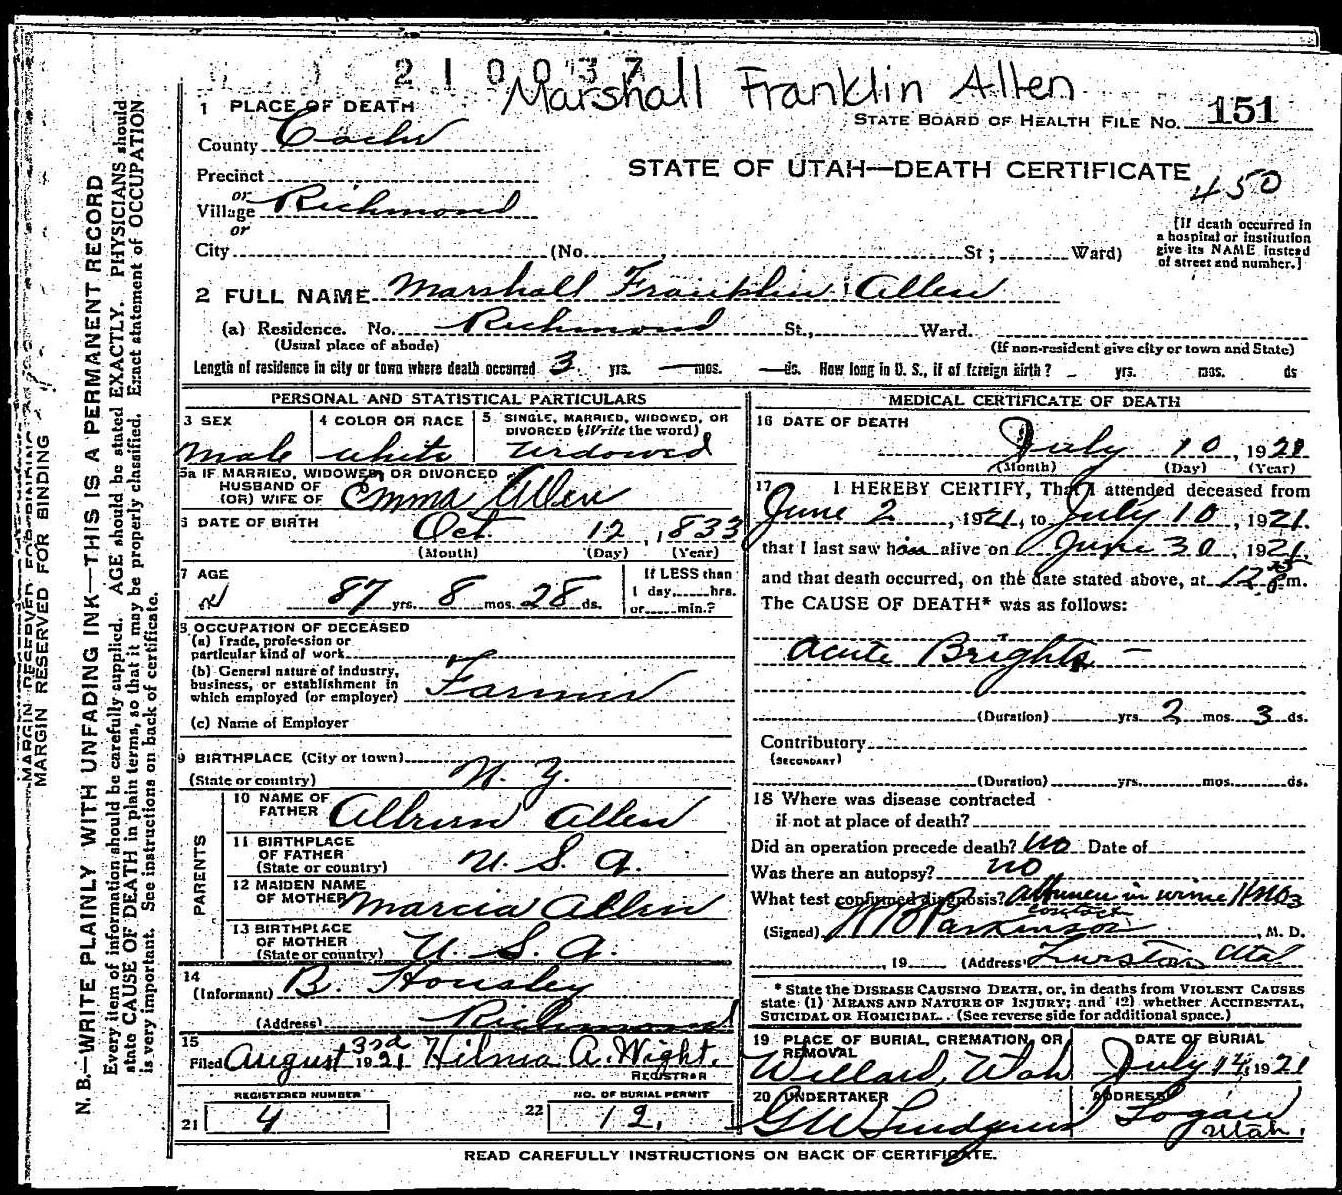 210037
Marshall Franklin Allen
1 PLACE OF DEATH
STATE BOARD OF HEALTH FILE No. 151
County Cache
STATE OF UTAH—DEATH CERTIFICATE
450
Precinct
or
Village Richmond
or
[If death occurred in
a hospital or institution
give its NAME instead
of street and number.]
City (No. St; Ward)
2 FULL NAME Marshall Franklin Allen
(a) Residence. No. Richmond St., Ward.
(Usual place of abode)
(If non-resident give city or town and State)
Length of residence in city or town where death occurred 3 yrs. — mos. — ds. How long in U. S., if of foreign birth? yrs. mos. ds
PERSONAL AND STATISTICAL PARTICULARS
3 SEX
male
4 COLOR OR RACE
white
5 SINGLE, MARRIED, WIDOWED, OR
DIVORCED (Write the word)
Widowed
5a IF MARRIED, WIDOWED, OR DIVORCED
HUSBAND OF
(OR) WIFE OF Emma Allen
6 DATE OF BIRTH
Oct. 12, 1833
(Month) (Day) (Year)
7 AGE
87 yrs. 8 mos. 28 ds.
If LESS than
1 day, hrs.
or min.?
8 OCCUPATION OF DECEASED
(a) Trade, profession or
particular kind of work
(b) General nature of industry,
business, or establishment in
which employed (or employer) Farmer
(c) Name of Employer
9 BIRTHPLACE (City or town)
(State or country) N. Y.
PARENTS
10 NAME OF
FATHER Allen
11 BIRTHPLACE
OF FATHER
(State or country) U. S. A.
12 MAIDEN NAME
OF MOTHER Marcia Allen
13 BIRTHPLACE
OF MOTHER
(State or country) U. S. A.
14
(Informant) B. Housley
(Address) Richmond
15
Filed August 3rd 1921 Hilma A. Wight.
REGISTRAR
REGISTERED NUMBER
21 4
NO. OF BURIAL PERMIT
22 12.
MEDICAL CERTIFICATE OF DEATH
16 DATE OF DEATH
July 10, 1921
(Month) (Day) (Year)
17 I HEREBY CERTIFY, That I attended deceased from
June 2, 1921, to July 10, 1921.
that I last saw him alive on June 30, 1921,
and that death occurred, on the date stated above, at 12 m.
The CAUSE OF DEATH* was as follows:
Acute Brights —
(Duration) yrs. 2 mos. 3 ds.
Contributory
(SECONDARY)
(Duration) yrs. mos. ds.
18 Where was disease contracted
if not at place of death?
Did an operation precede death? no Date of
Was there an autopsy? no
What test confirmed diagnosis? albumen in urine HNO3
contact
(Signed) W B Parkinson, M. D.
, 19 (Address) Utah
* State the DISEASE CAUSING DEATH, or, in deaths from VIOLENT CAUSES
state (1) MEANS AND NATURE OF INJURY; and (2) whether ACCIDENTAL,
SUICIDAL OR HOMICIDAL. (See reverse side for additional space.)
19 PLACE OF BURIAL, CREMATION, OR
REMOVAL
Willard, Utah
DATE OF BURIAL
July 14, 1921
20 UNDERTAKER
G W Lindquist
ADDRESS
Logan
Utah.
READ CAREFULLY INSTRUCTIONS ON BACK OF CERTIFICATE.
MARGIN RESERVED FOR BINDING
MARGIN RESERVED FOR BINDING
N. B.—WRITE PLAINLY WITH UNFADING INK—THIS IS A PERMANENT RECORD
Every item of information should be carefully supplied. AGE should be stated EXACTLY. PHYSICIANS should
state CAUSE OF DEATH in plain terms, so that it may be properly classified. Exact statement of OCCUPATION
is very important. See instructions on back of certificate.